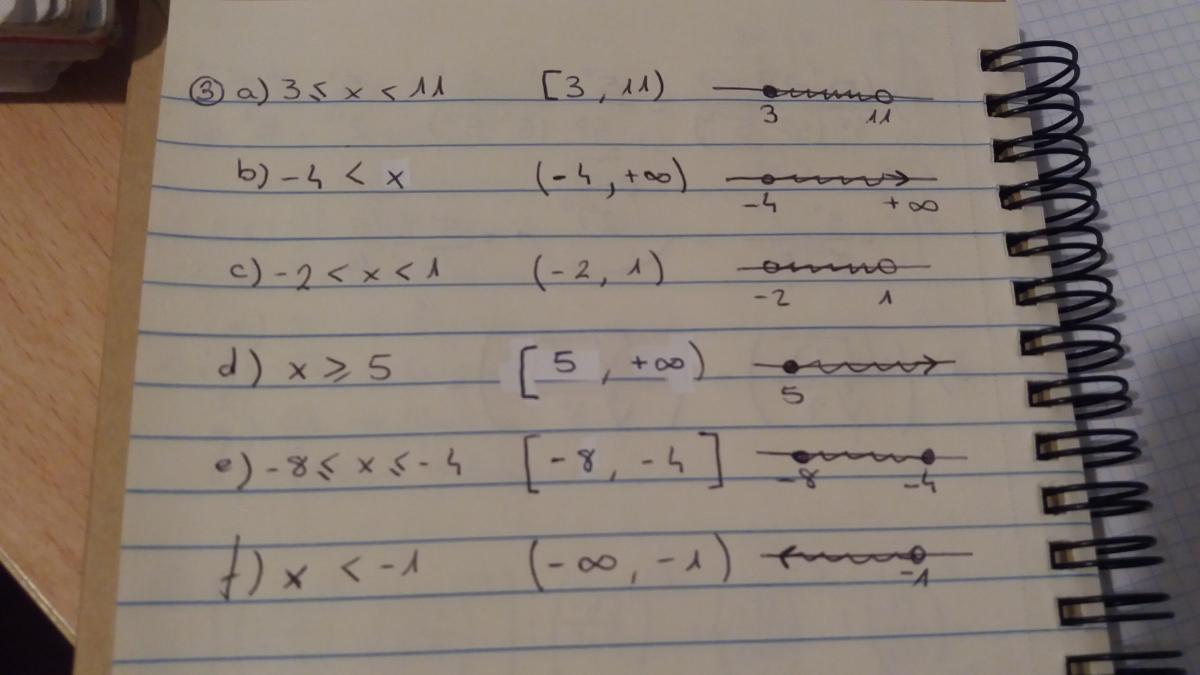 ③ a) 3 ≤ x < 11 [3, 11) 3 11
b) -4 < x (-4, +∞) -4 +∞
c) -2 < x < 1 (-2, 1) -2 1
d) x ≥ 5 [5, +∞) 5
e) -8 ≤ x ≤ -4 [-8, -4] -8 -4
f) x < -1 (-∞, -1) -1